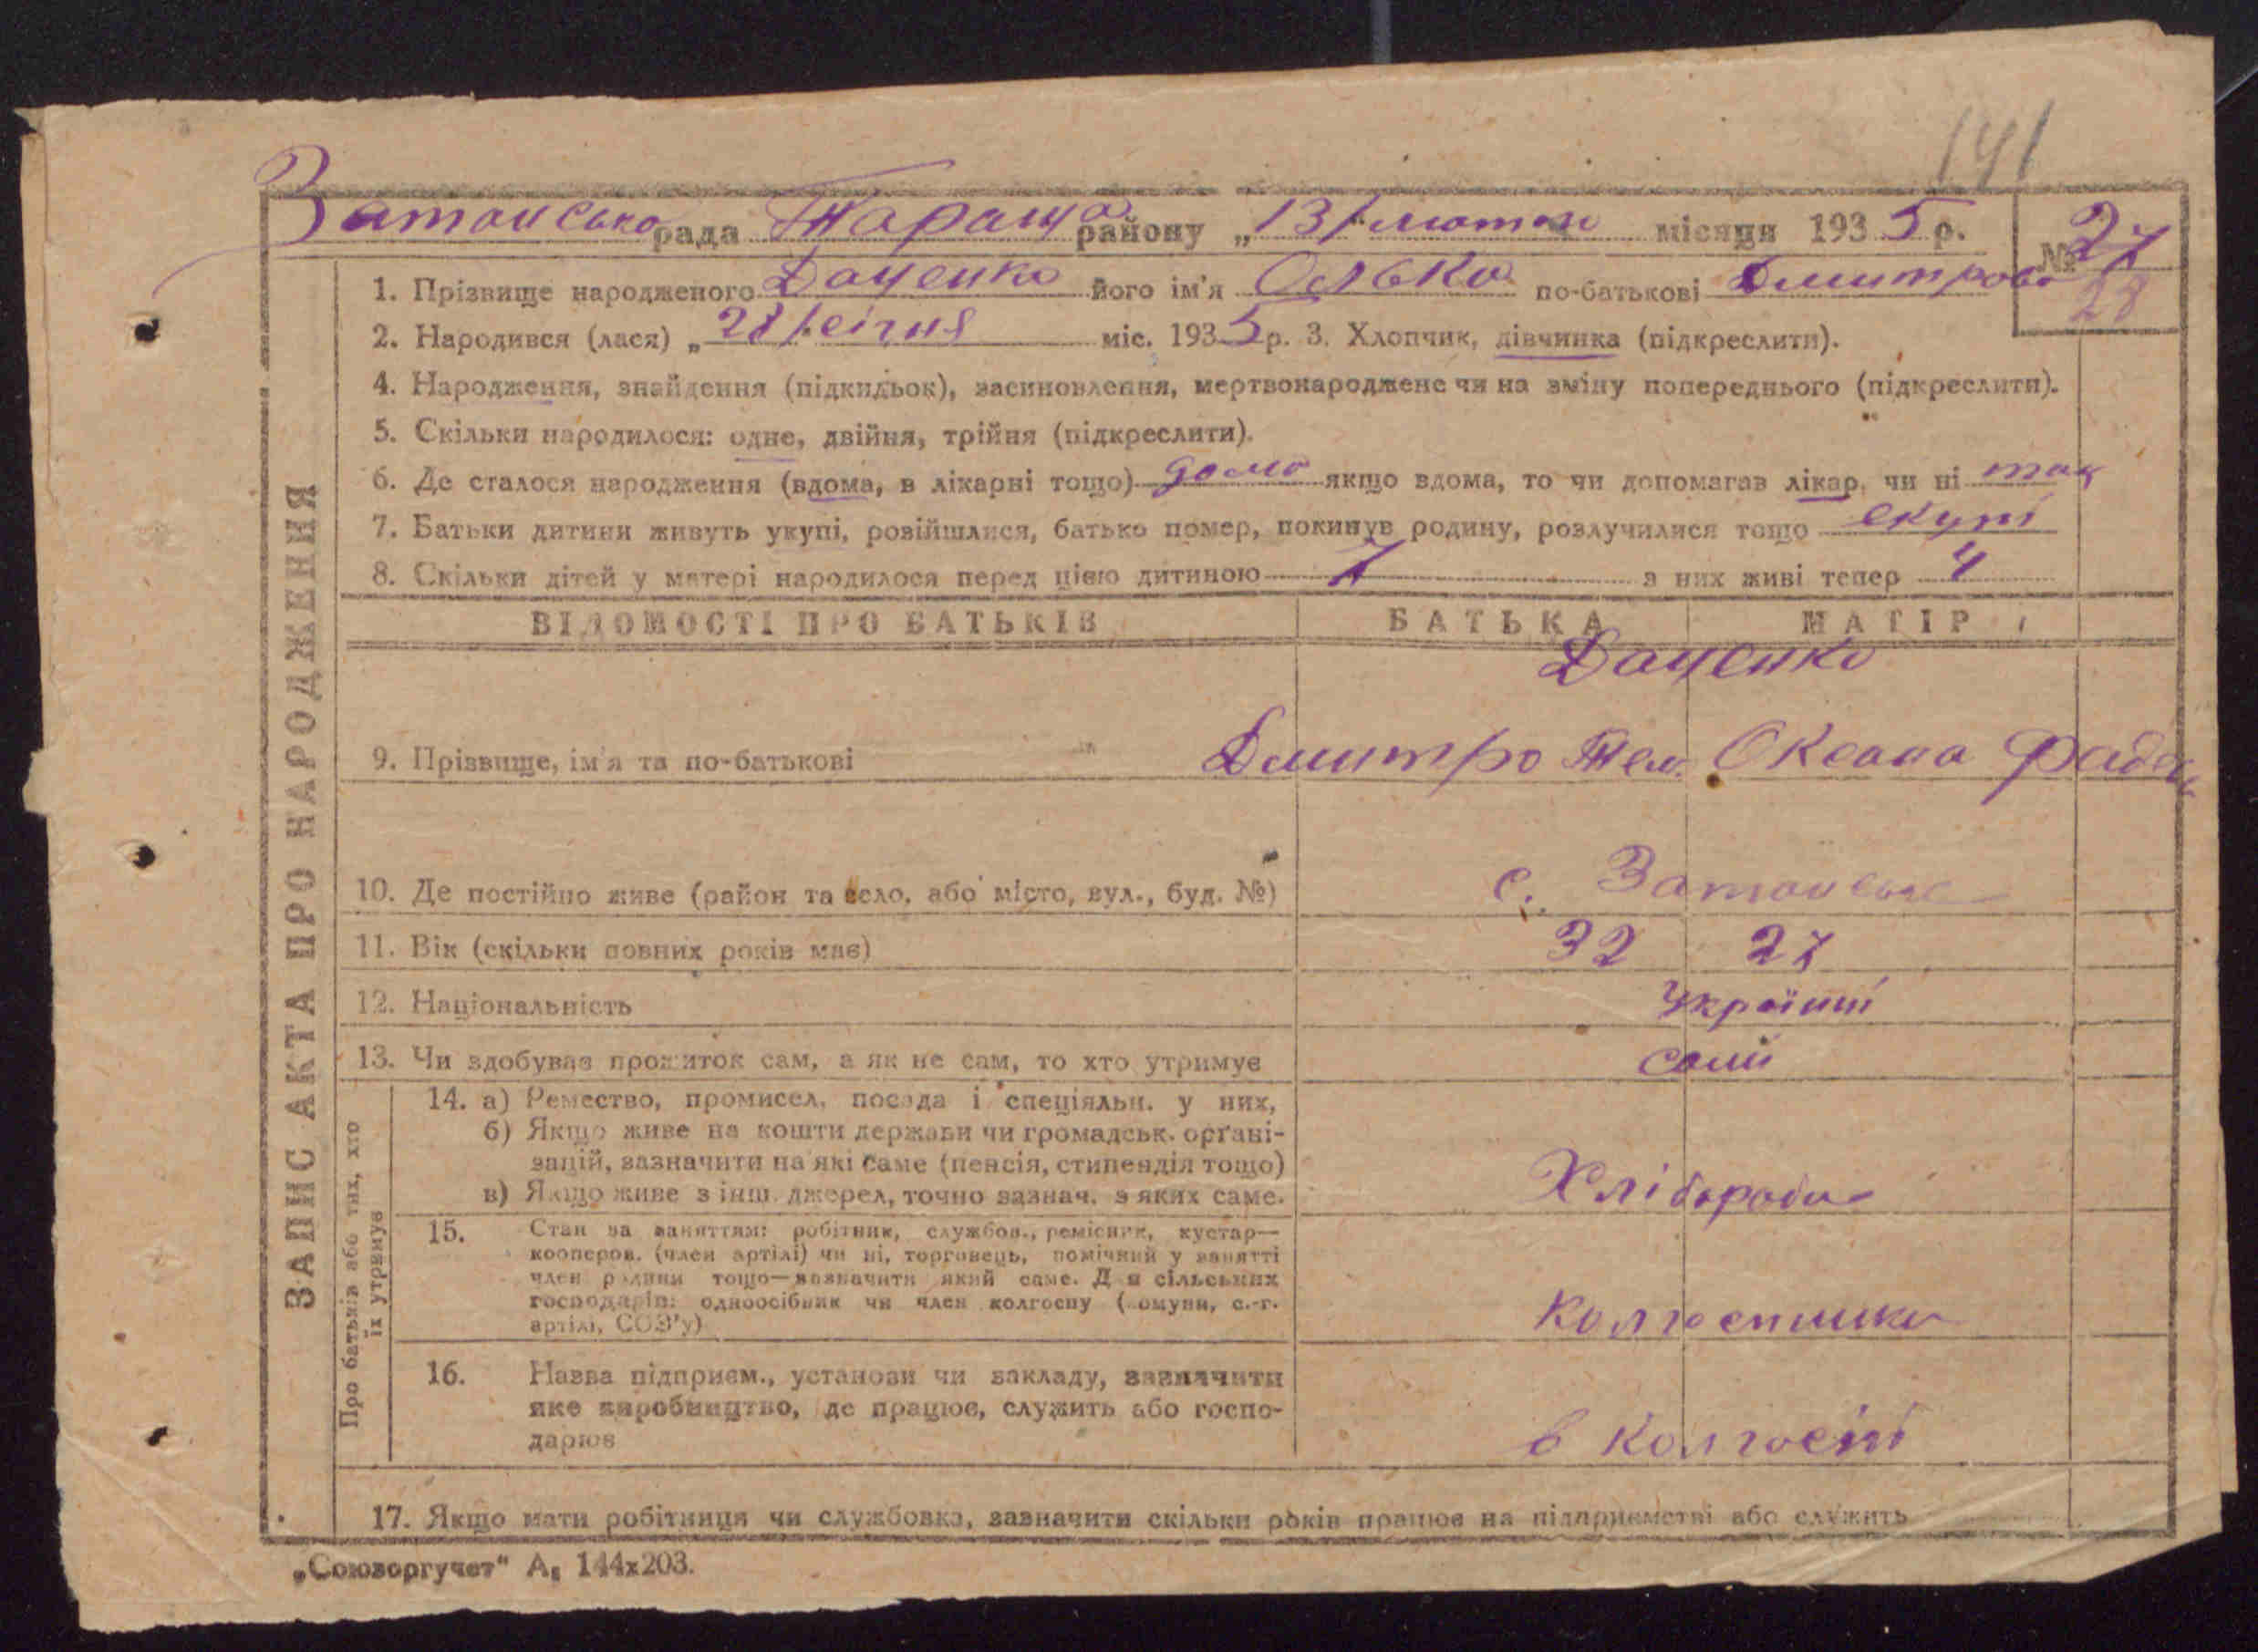 141
Затонсько рада Тараща району „13/ лютого місяця 1935 р. № 27
28
1. Прізвище народженого Даценко його ім'я Олька по-батькові Дмитрова
2. Народився (лася) „28/ січня міс. 1935 р. 3. Хлопчик, дівчинка (підкреслити).
4. Народження, знайдення (підкидьок), засиновлення, мертвонароджене чи на зміну попереднього (підкреслити).
5. Скільки народилося: одне, двійня, трійня (підкреслити).
6. Де сталося народження (вдома, в лікарні тощо) дома якщо вдома, то чи допомагав лікар, чи ні так
7. Батьки дитини живуть укупі, розійшлися, батько помер, покинув родину, розлучилися тощо вкупі
8. Скільки дітей у матері народилося перед цією дитиною 7 з них живі тепер 4
ЗАПИС АКТА ПРО НАРОДЖЕННЯ
ВІДОМОСТІ ПРО БАТЬКІВ БАТЬКА МАТІР
Даценко
9. Прізвище, ім'я та по-батькові Дмитро Тем. Оксана
10. Де постійно живе (район та село, або місто, вул., буд. №) с. Затонське
11. Вік (скільки повних років має) 32 27
12. Національність Українці
13. Чи здобував прожиток сам, а як не сам, то хто утримує сами
Про батьків або тих, хто їх утримує
14. а) Ремество, промисел, посада і спеціяльн. у них,
б) Якщо живе на кошти держави чи громадськ. орґані-
зацій, зазначити на які саме (пенсія, стипендія тощо)
в) Якщо живе з інш. джерел, точно зазнач. з яких саме. Хлібороби
15. Стан за заняттям: робітник, службов., ремісник, кустар—
кооперов. (член артілі) чи ні, торговець, помічний у занятті
член родини тощо—зазначити який саме. Для сільських
господарів: одноосібник чи член колгоспу (комуни, с.-г.
артілі, СОЗ'у) колгоспники
16. Назва підприєм., установи чи закладу, зазначити
яке виробництво, де працює, служить або госпо-
дарює в колгоспі
17. Якщо мати робітниця чи службовка, зазначити скільки років працює на підприємстві або служить
„Союзоргучет" А₅ 144х203.